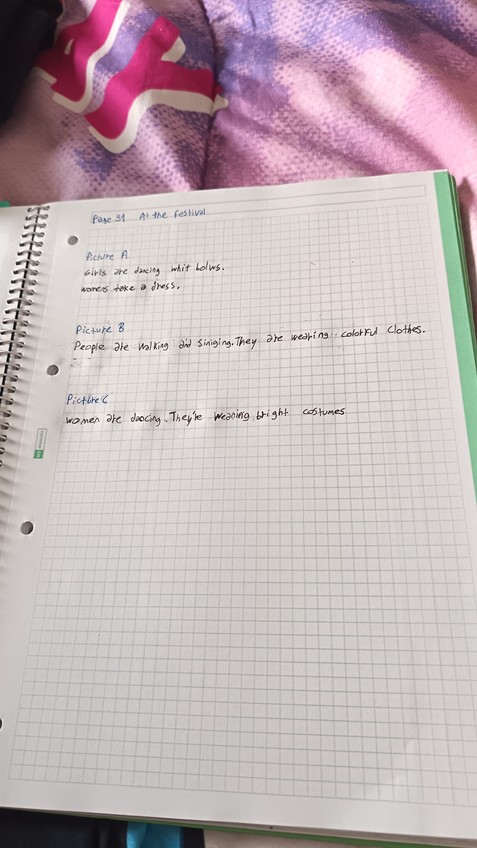 Page 31 At the festival
Picture A
Girls are dancing whit bolws.
womens take a dress.
Picture B
People are walking and siniging. They are wearing colorful clothes.
Picture C
women are dancing. They're wearing bright costumes